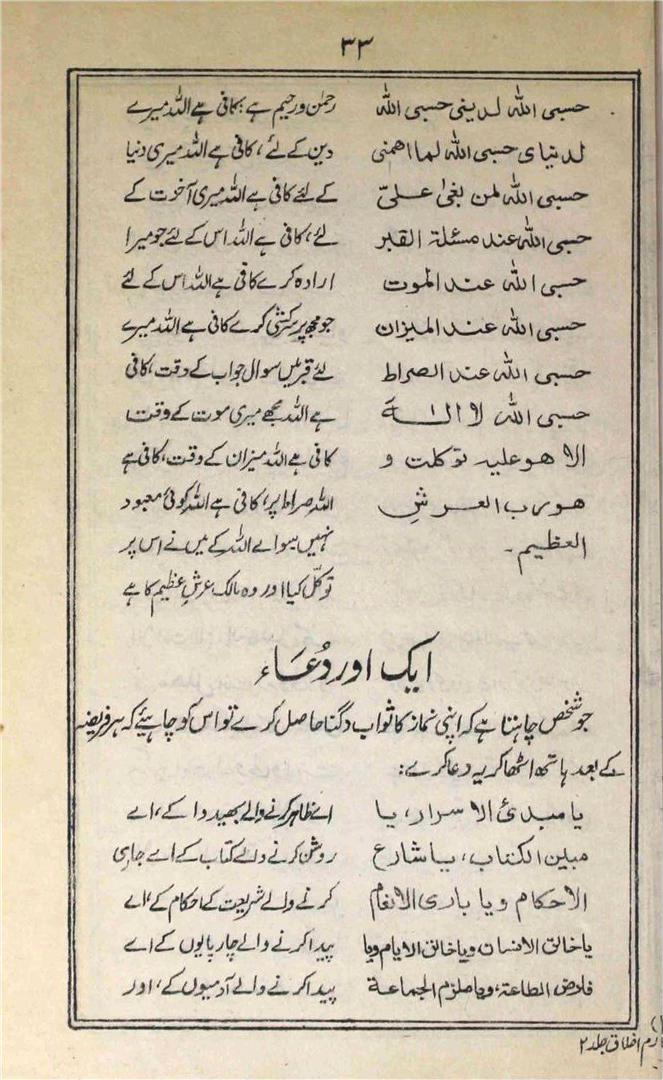 ۳۳
حسبی اللہ لدینی حسبی اللہ
لدنیای حسبی اللہ لما اھمنی
حسبی اللہ لمن بغیٰ علیّ
حسبی اللہ عند مسئلة القبر
حسبی اللہ عند الموت
حسبی اللہ عند المیزان
حسبی اللہ عند الصراط
حسبی اللہ لا الٰہ
الا ھو علیہ توکلت و
ھو رب العرشِ
العظیم۔
رحمٰن و رحیم ہے، کافی ہے اللہ میرے
دین کے لئے، کافی ہے اللہ میری دنیا
کے لئے کافی ہے اللہ میری آخرت کے
لئے، کافی ہے اللہ اس کے لئے جو میرا
ارادہ کرے کافی ہے اللہ اس کے لئے
جو مجھ پر سرکشی کرے کافی ہے اللہ میرے
لئے قبر میں سوال جواب کے وقت، کافی
ہے اللہ مجھے میری موت کے وقت
کافی ہے اللہ میزان کے وقت، کافی ہے
اللہ صراط پر، کافی ہے اللہ کوئی معبود
نہیں سوائے اللہ کے میں نے اس پر
توکّل کیا اور وہ مالک عرش عظیم کا ہے
ایک اور دُعَاء
جو شخص چاہتا ہے کہ اپنی نماز کا ثواب دگنا حاصل کرے تو اس کو چاہیئے کہ ہر فریضہ
کے بعد ہاتھ اٹھا کر یہ دعا کرے:
یا مبدئ الاسرار، یا
مبین الکتاب، یا شارع
الاحکام و یا باری الانعام
یا خالق الانسان و یا خالق الایام و یا
فارض الطاعة، و یا ملزم الجماعة
اے ظاہر کرنے والے بھیدوا کے، اے
روشن کرنے والے کتاب کے اے جاری
کرنے والے شریعت کے احکام کے، اے
پیدا کرنے والے چارپایوں کے اے
پیدا کرنے والے آدمیوں کے، اور
ارم اخلاق جلد ۲